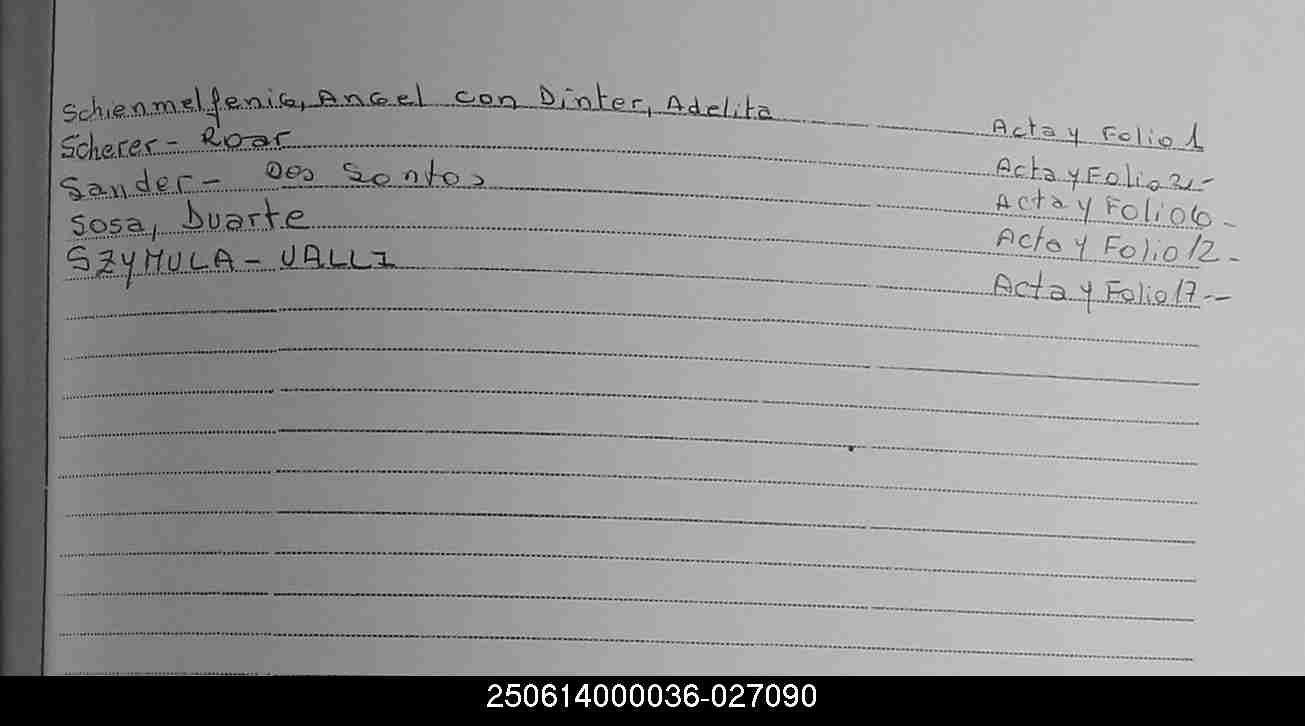 Schienmelfenig, Angel con Dinter, Adelita Acta y Folio 1
Scherer - Roar Acta y Folio
Sander - Dos Santos Acta y Folio 06 -
Sosa, Duarte Acta y Folio 12 -
SZYMULA - VALLI Acta y Folio 17 --
250614000036-027090